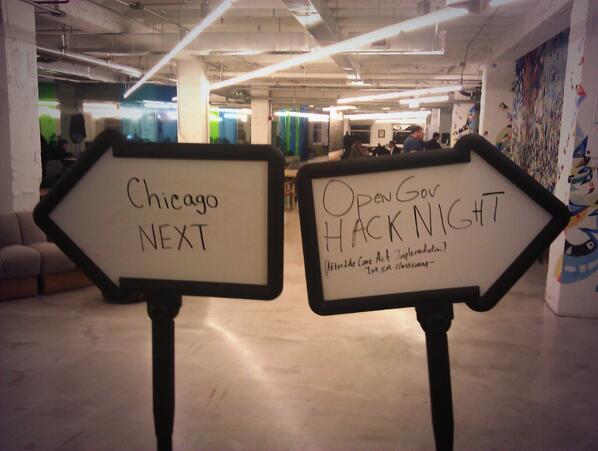 Chicago
NEXT
OpenGov
HACK NIGHT
(Affordable Care Act Implementation)
IMSA classroom